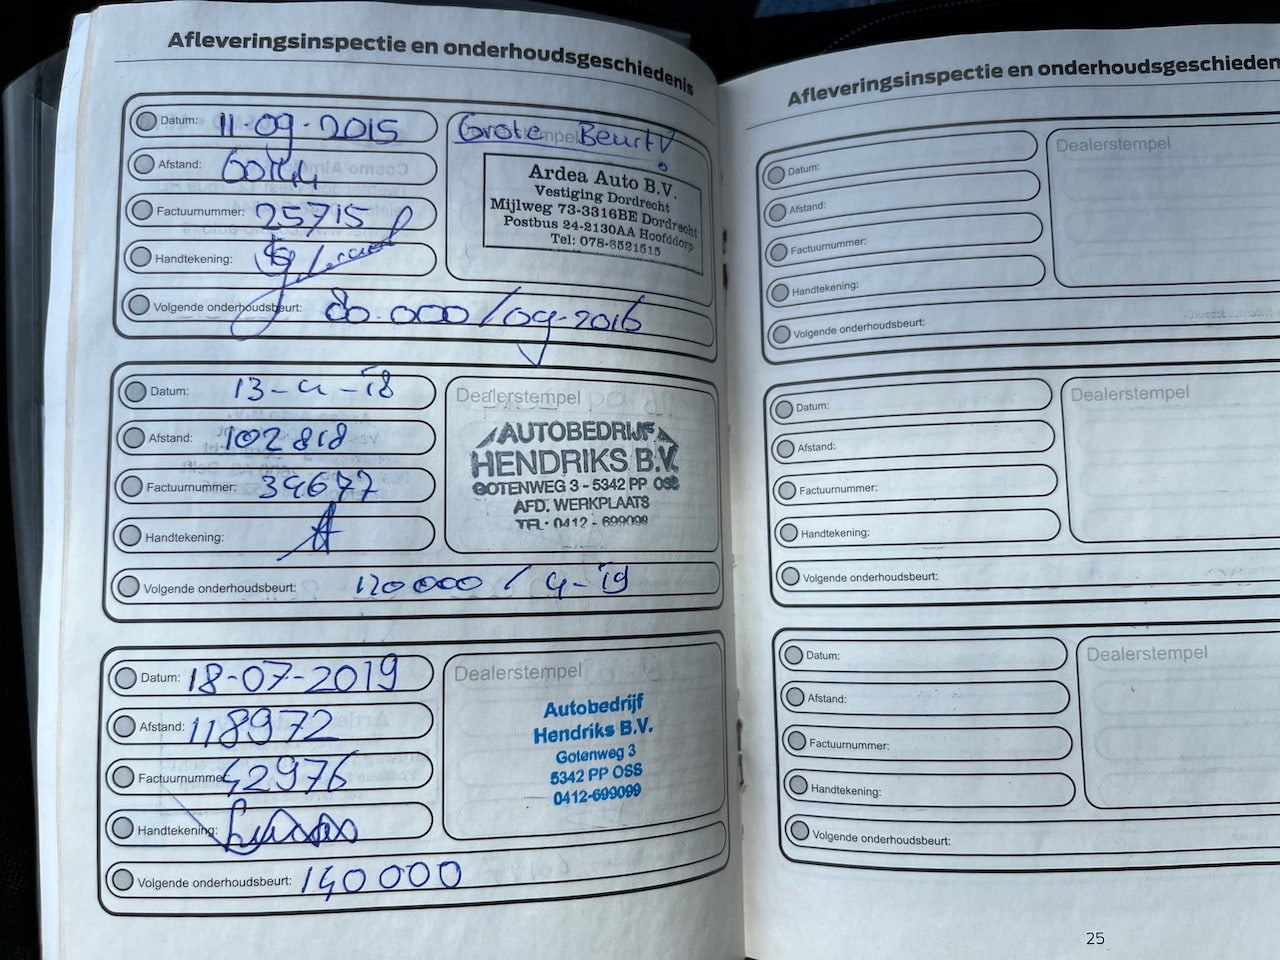 Afleveringsinspectie en onderhoudsgeschiedenis
Datum: 11-09-2015
Afstand:
Factuurnummer: 25715
Handtekening:
Volgende onderhoudsbeurt: 80.000 / 09-2016
Grote Beurt!
Ardea Auto B.V.
Vestiging Dordrecht
Mijlweg 73-3316BE Dordrecht
Postbus 24-2130AA Hoofddorp
Tel: 078-6521515
Datum: 13-4-18
Afstand: 102818
Factuurnummer: 34677
Handtekening:
Volgende onderhoudsbeurt: 120000 / 4-19
Dealerstempel
AUTOBEDRIJF
HENDRIKS B.V.
GOTENWEG 3 - 5342 PP OSS
AFD. WERKPLAATS
TEL. 0412 - 699099
Datum: 18-07-2019
Afstand: 118972
Factuurnummer: 42976
Handtekening:
Volgende onderhoudsbeurt: 140000
Dealerstempel
Autobedrijf
Hendriks B.V.
Gotenweg 3
5342 PP OSS
0412-699099
Afleveringsinspectie en onderhoudsgeschieden
Datum:
Afstand:
Factuurnummer:
Handtekening:
Volgende onderhoudsbeurt:
Dealerstempel
Datum:
Afstand:
Factuurnummer:
Handtekening:
Volgende onderhoudsbeurt:
Dealerstempel
Datum:
Afstand:
Factuurnummer:
Handtekening:
Volgende onderhoudsbeurt:
Dealerstempel
25